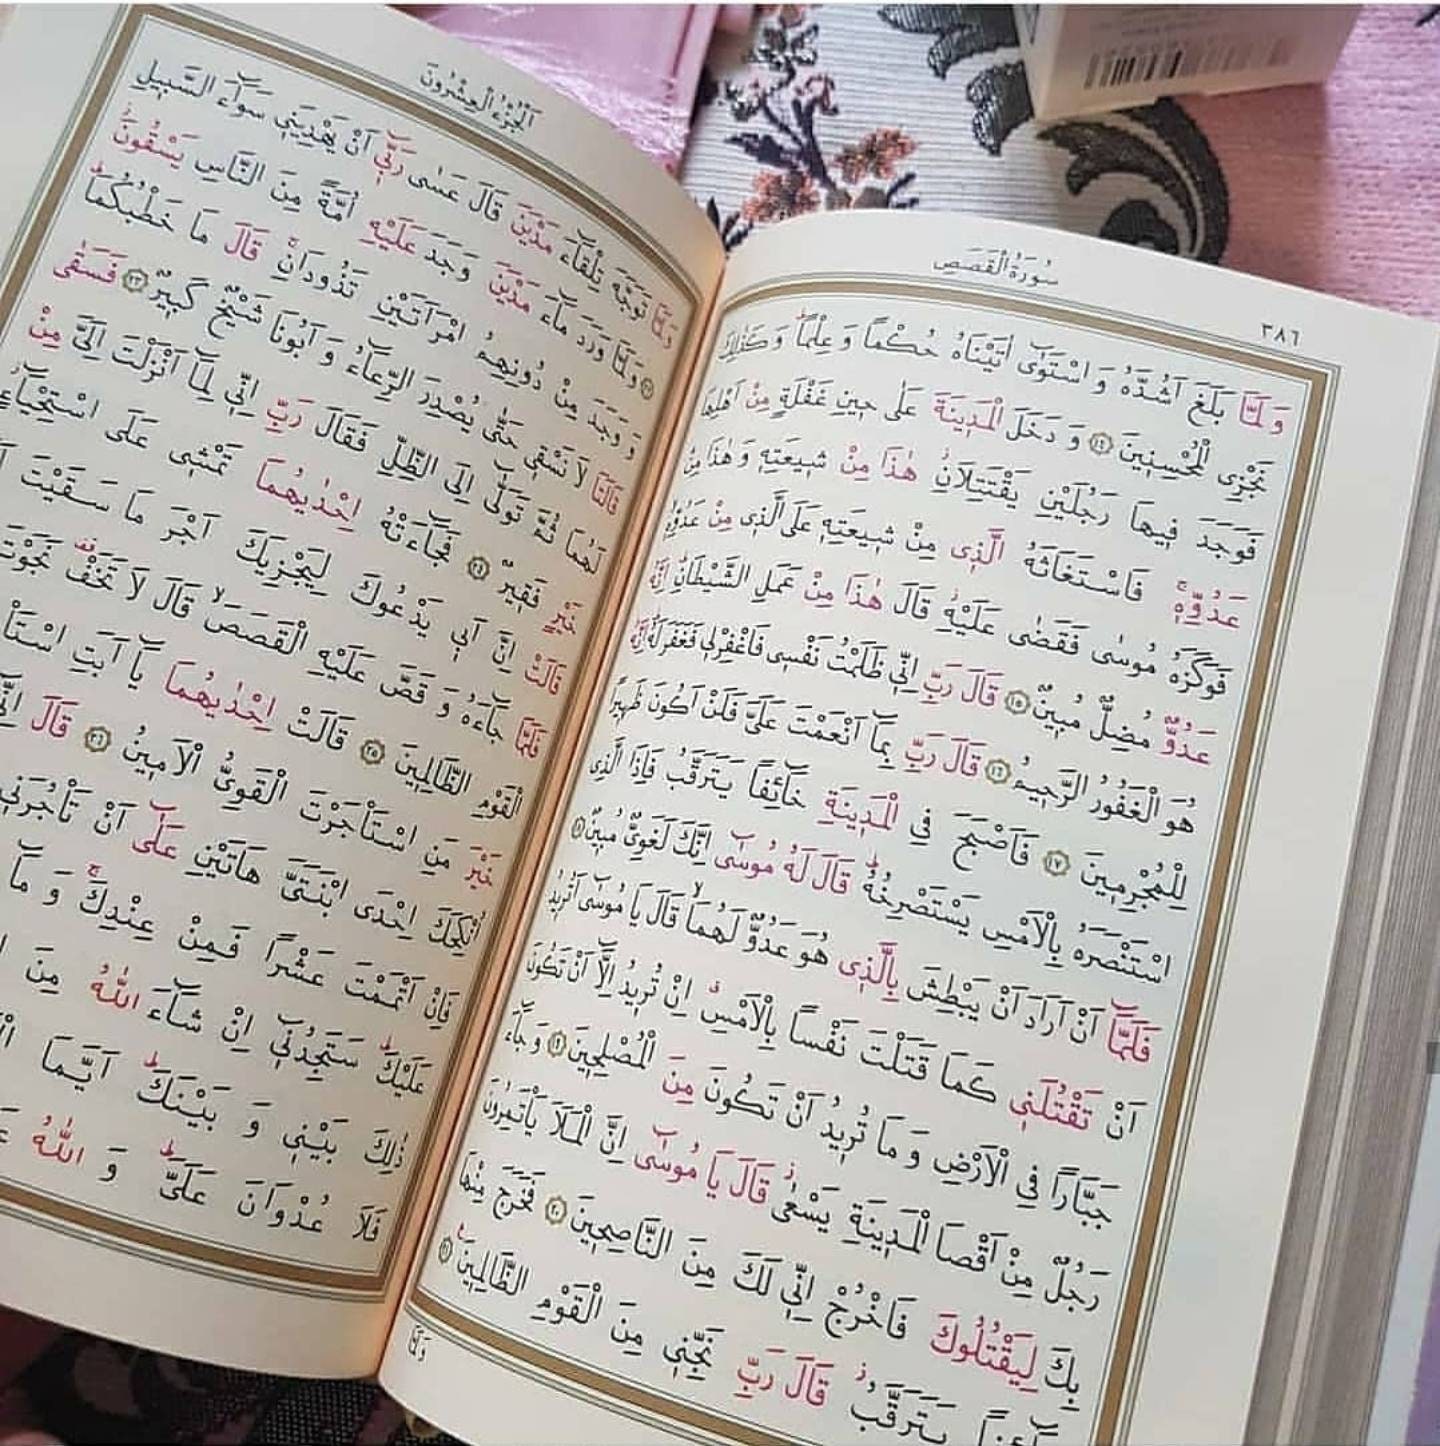 سُورَةُ الْقَصَصِ
٣٨٦
وَلَمَّا بَلَغَ اَشُدَّهُ وَاسْتَوٰٓى اٰتَيْنَاهُ حُكْمًا وَعِلْمًاۜ وَكَذٰلِكَ
نَجْزِي الْمُحْسِنٖينَ ١٤ وَدَخَلَ الْمَدٖينَةَ عَلٰى حٖينِ غَفْلَةٍ مِنْ اَهْلِهَا
فَوَجَدَ فٖيهَا رَجُلَيْنِ يَقْتَتِلَانِۘ هٰذَا مِنْ شٖيعَتِهٖ وَهٰذَا مِنْ
عَدُوِّهٖۚ فَاسْتَغَاثَهُ الَّذٖي مِنْ شٖيعَتِهٖ عَلَى الَّذٖي مِنْ عَدُوِّهٖ
فَوَكَزَهُ مُوسٰى فَقَضٰى عَلَيْهِۘ قَالَ هٰذَا مِنْ عَمَلِ الشَّيْطَانِۜ اِنَّهُ
عَدُوٌّ مُضِلٌّ مُبٖينٌ ١٥ قَالَ رَبِّ اِنّٖي ظَلَمْتُ نَفْسٖي فَاغْفِرْ لٖي فَغَفَرَ لَهُۜ اِنَّهُ
هُوَ الْغَفُورُ الرَّحٖيمُ ١٦ قَالَ رَبِّ بِمَٓا اَنْعَمْتَ عَلَيَّ فَلَنْ اَكُونَ ظَهٖيرًا
لِلْمُجْرِمٖينَ ١٧ فَاَصْبَحَ فِي الْمَدٖينَةِ خَٓائِفًا يَتَرَقَّبُ فَاِذَا الَّذِي
اسْتَنْصَرَهُ بِالْاَمْسِ يَسْتَصْرِخُهُۜ قَالَ لَهُ مُوسٰٓى اِنَّكَ لَغَوِيٌّ مُبٖينٌ ١٨
فَلَمَّٓا اَنْ اَرَادَ اَنْ يَبْطِشَ بِالَّذٖي هُوَ عَدُوٌّ لَهُمَاۙ قَالَ يَا مُوسٰٓى اَتُرٖيدُ
اَنْ تَقْتُلَنٖي كَمَا قَتَلْتَ نَفْسًا بِالْاَمْسِۗ اِنْ تُرٖيدُ اِلَّٓا اَنْ تَكُونَ
جَبَّارًا فِي الْاَرْضِ وَمَا تُرٖيدُ اَنْ تَكُونَ مِنَ الْمُصْلِحٖينَ ١٩ وَجَٓاءَ
رَجُلٌ مِنْ اَقْصَا الْمَدٖينَةِ يَسْعٰىؗ قَالَ يَا مُوسٰٓى اِنَّ الْمَلَاَ يَأْتَمِرُونَ
بِكَ لِيَقْتُلُوكَ فَاخْرُجْ اِنّٖي لَكَ مِنَ النَّاصِحٖينَ ٢٠ فَخَرَجَ مِنْهَا
يَتَرَقَّبُؗ قَالَ رَبِّ نَجِّنٖي مِنَ الْقَوْمِ الظَّالِمٖينَ ٢١
وَلَمَّا
اَلْجُزْءُ الْعِشْرُونَ
وَلَمَّا تَوَجَّهَ تِلْقَٓاءَ مَدْيَنَ قَالَ عَسٰى رَبّٖٓي اَنْ يَهْدِيَنٖي سَوَٓاءَ السَّبٖيلِ
٢٢ وَلَمَّا وَرَدَ مَٓاءَ مَدْيَنَ وَجَدَ عَلَيْهِ اُمَّةً مِنَ النَّاسِ يَسْقُونَؗ
وَوَجَدَ مِنْ دُونِهِمُ امْرَاَتَيْنِ تَذُودَانِۚ قَالَ مَا خَطْبُكُمَاۜ
قَالَتَا لَا نَسْقٖي حَتّٰى يُصْدِرَ الرِّعَٓاءُ وَاَبُونَا شَيْخٌ كَبٖيرٌ ٢٣ فَسَقٰى
لَهُمَا ثُمَّ تَوَلّٰٓى اِلَى الظِّلِّ فَقَالَ رَبِّ اِنّٖي لِمَٓا اَنْزَلْتَ اِلَيَّ مِنْ
خَيْرٍ فَقٖيرٌ ٢٤ فَجَٓاءَتْهُ اِحْدٰيهُمَا تَمْشٖي عَلَى اسْتِحْيَٓاءٍ
قَالَتْ اِنَّ اَبٖي يَدْعُوكَ لِيَجْزِيَكَ اَجْرَ مَا سَقَيْتَ
فَلَمَّا جَٓاءَهُ وَقَصَّ عَلَيْهِ الْقَصَصَۙ قَالَ لَا تَخَفْ۠ نَجَوْتَ
الْقَوْمِ الظَّالِمٖينَ ٢٥ قَالَتْ اِحْدٰيهُمَا يَٓا اَبَتِ
خَيْرَ مَنِ اسْتَأْجَرْتَ الْقَوِيُّ الْاَمٖينُ ٢٦ قَالَ
اُنْكِحَكَ اِحْدَى ابْنَتَيَّ هَاتَيْنِ عَلٰٓى اَنْ تَأْجُرَنٖي
فَاِنْ اَتْمَمْتَ عَشْرًا فَمِنْ عِنْدِكَۚ وَمَٓا
عَلَيْكَۜ سَتَجِدُنٖٓي اِنْ شَٓاءَ اللّٰهُ مِنَ
ذٰلِكَ بَيْنٖي وَبَيْنَكَۜ اَيَّمَا
فَلَا عُدْوَانَ عَلَيَّۜ وَاللّٰهُ